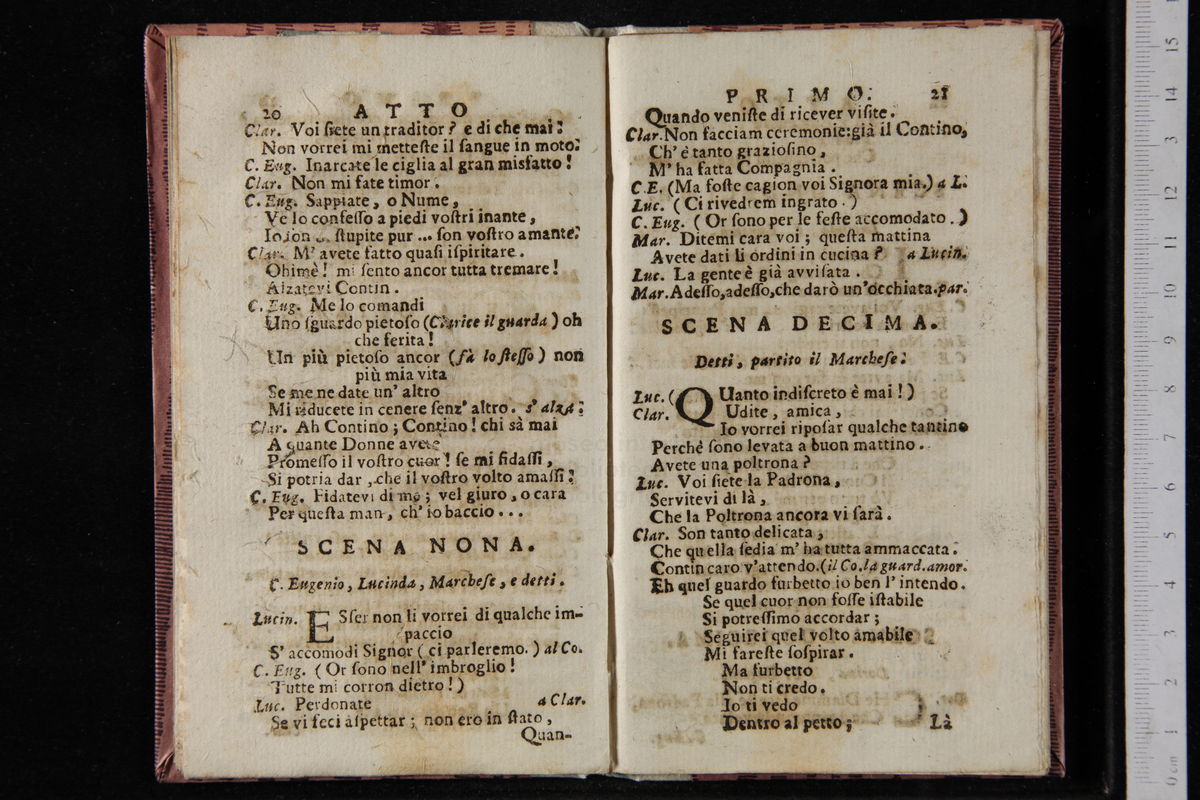 20 ATTO
Clar. Voi ſiete un traditor? e di che mai?
Non vorrei mi metteſte il ſangue in moto.
C. Eug. Inarcate le ciglia al gran misfatto!
Clar. Non mi fate timor.
C. Eug. Sappiate, o Nume,
Ve lo confeſſo a piedi voſtri inante,
Io ſon ... ſtupite pur ... ſon voſtro amante.
Clar. M' avete fatto quaſi iſpiritare.
Ohimè! mi ſento ancor tutta tremare!
Alzatevi Contin.
C. Eug. Me lo comandi
Uno ſguardo pietoſo (Clarice il guarda) oh
che ferita!
Un più pietoſo ancor (fà lo ſteſſo) non
più mia vita
Se me ne date un' altro
Mi riducete in cenere ſenz' altro. s' alza.
Clar. Ah Contino; Contino! chi sà mai
A quante Donne avete
Promeſſo il voſtro cuor! ſe mi fidaſſi,
Si potria dar, che il voſtro volto amaſſi.
C. Eug. Fidatevi di me; vel giuro, o cara
Per queſta man, ch' io baccio...
SCENA NONA.
C. Eugenio, Lucinda, Marcheſe, e detti.
Lucin. ESſer non li vorrei di qualche im-
paccio
S' accomodi Signor (ci parleremo.) al Co.
C. Eug. (Or ſono nell' imbroglio!
Tutte mi corron dietro!)
Luc. Perdonate a Clar.
Se vi feci aſpettar; non ero in ſtato,
Quan-
PRIMO. 21
Quando veniſte di ricever viſite.
Clar. Non facciam ceremonie: già il Contino,
Ch' è tanto grazioſino,
M' ha fatta Compagnia.
C.E. (Ma foſte cagion voi Signora mia.) a L.
Luc. (Ci rivedrem ingrato.)
C. Eug. (Or ſono per le feſte accomodato.)
Mar. Ditemi cara voi; queſta mattina
Avete dati li ordini in cucina? a Lucin.
Luc. La gente è già avviſata.
Mar. Adeſſo, adeſſo, che darò un' occhiata. par.
SCENA DECIMA.
Detti, partito il Marcheſe.
Luc. (QUanto indiſcreto è mai!)
Clar. Udite, amica,
Io vorrei ripoſar qualche tantino
Perchè ſono levata a buon mattino.
Avete una poltrona?
Luc. Voi ſiete la Padrona,
Servitevi di là,
Che la Poltrona ancora vi ſarà.
Clar. Son tanto delicata,
Che quella ſedia m' ha tutta ammaccata.
Contin caro v' attendo. (il Co. la guard. amor.
Eh quel guardo furbetto io ben l' intendo.
Se quel cuor non foſſe iſtabile
Si potreſſimo accordar;
Seguirei quel volto amabile
Mi fareſte ſoſpirar.
Ma furbetto
Non ti credo.
Io ti vedo
Dentro al petto;
Là